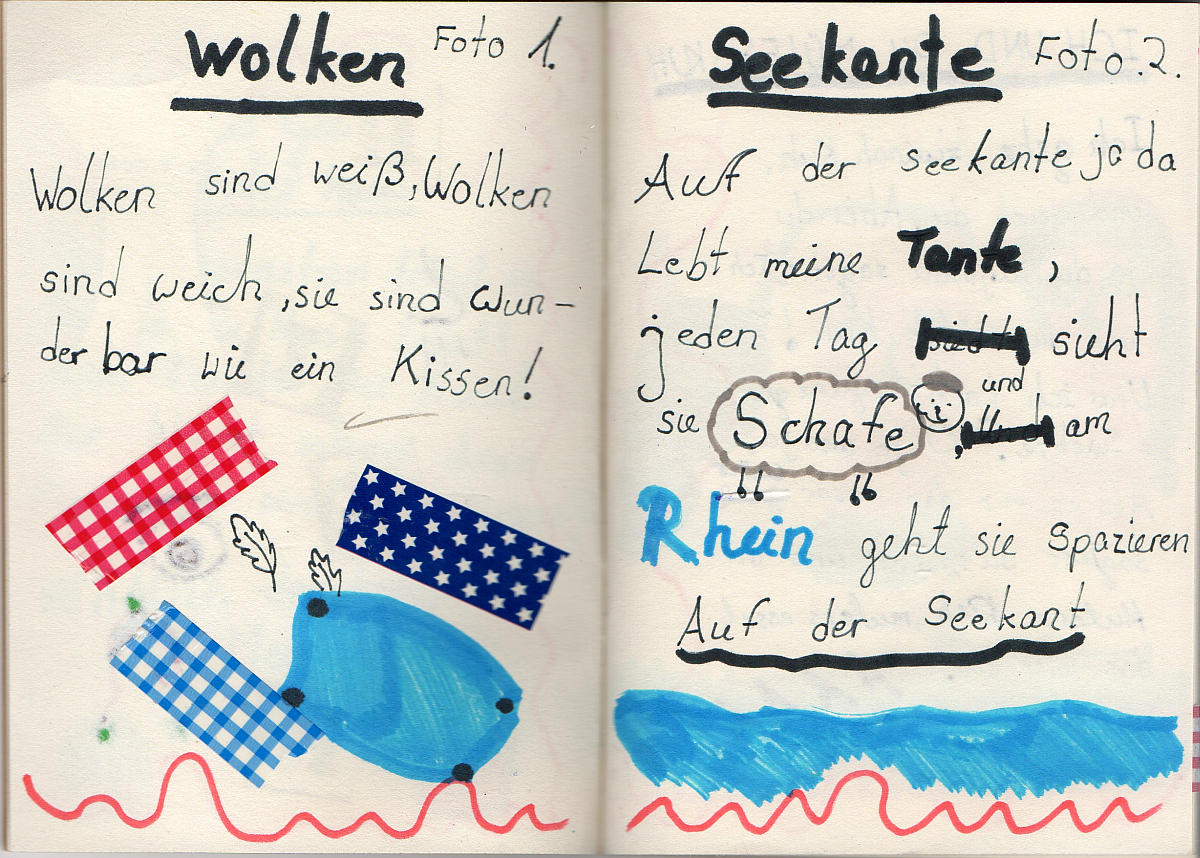 Wolken Foto 1.
Wolken sind weiß, Wolken
sind weich, sie sind wun-
derbar wie ein Kissen!
Seekante Foto.2.
Auf der seekante ja da
Lebt meine Tante,
jeden Tag sieht
und
sie Schafe, am
Rhein geht sie spazieren
Auf der Seekant